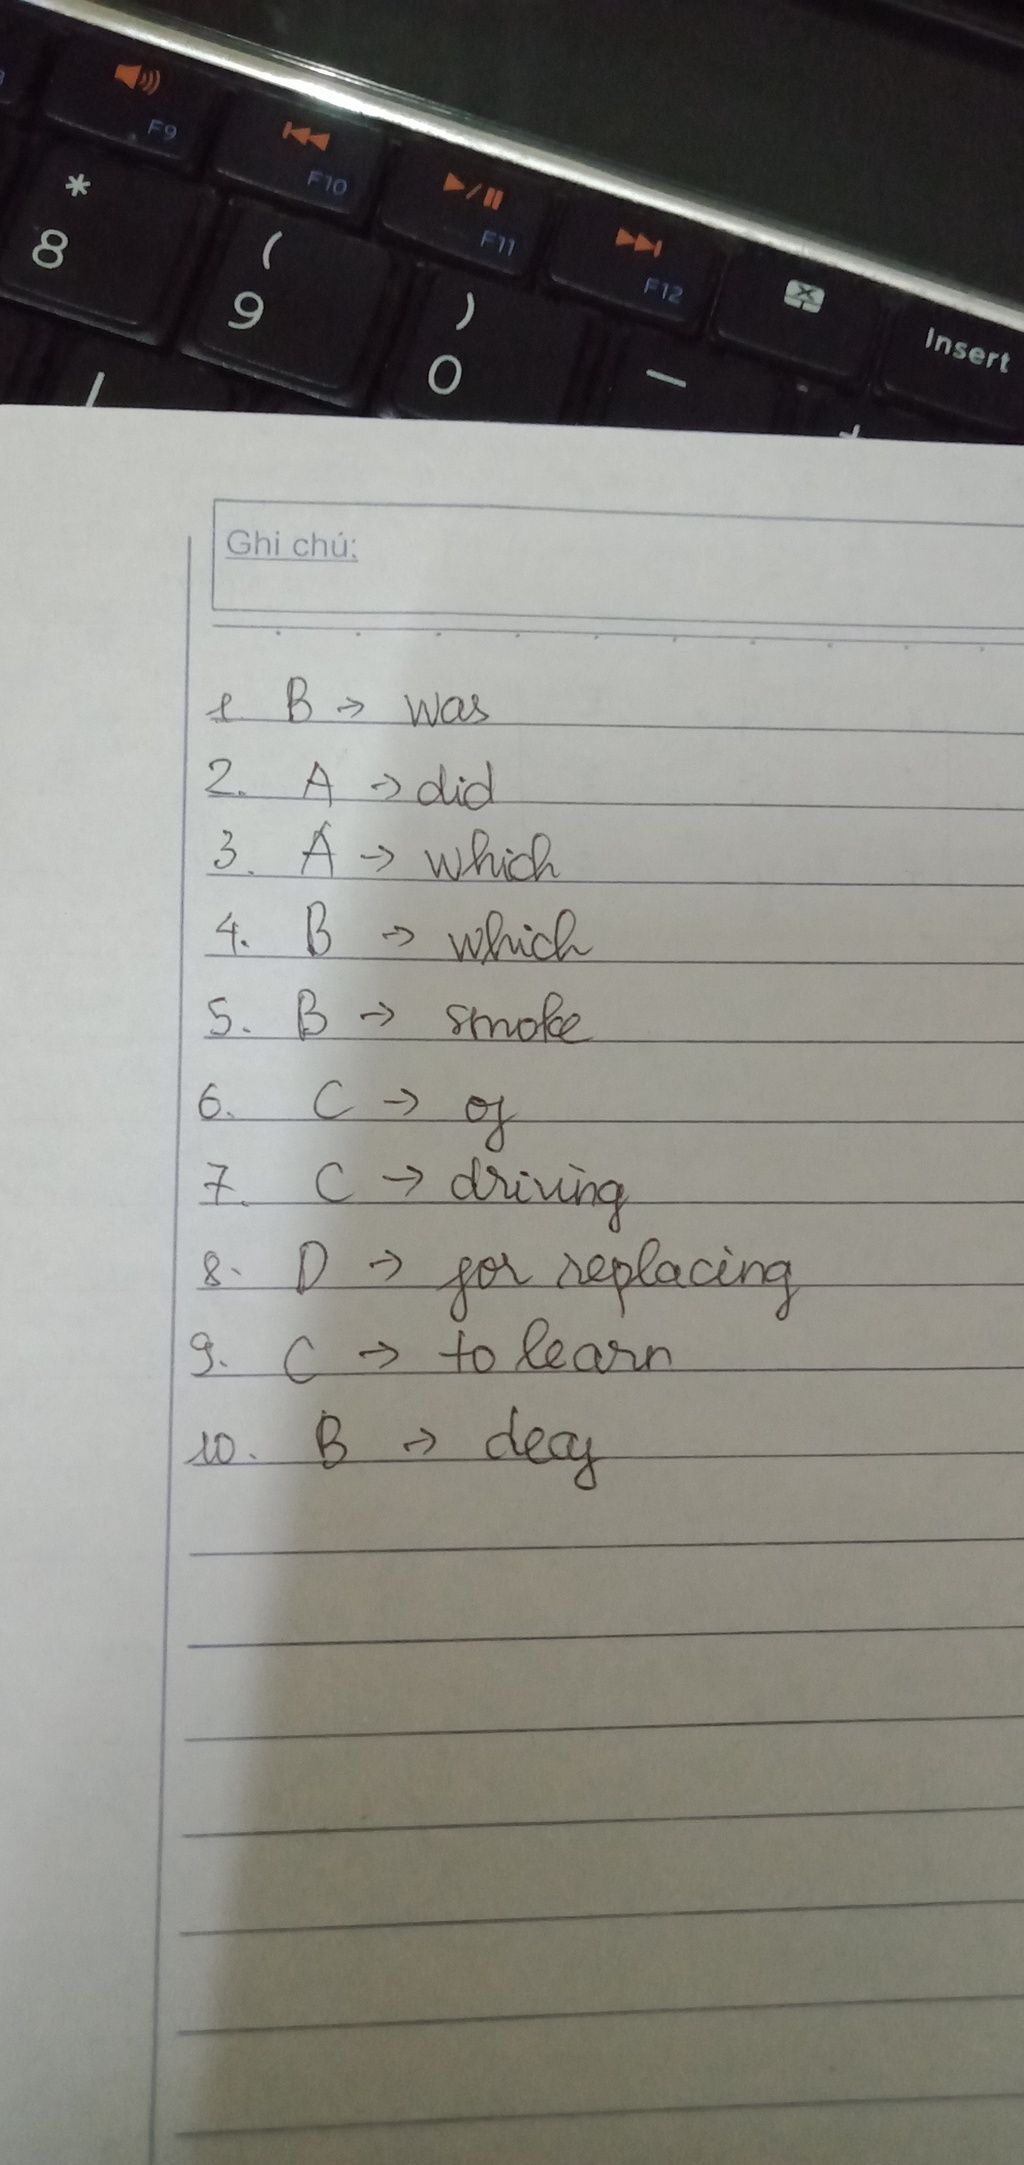 F9
F10
F11
F12
*
8
(
9
)
0
-
Insert
Ghi chú:
1 B → was
2. A → did
3. A → which
4. B → which
5. B → smoke
6. C → of
7. C → driving
8. D → for replacing
9. C → to learn
10. B →